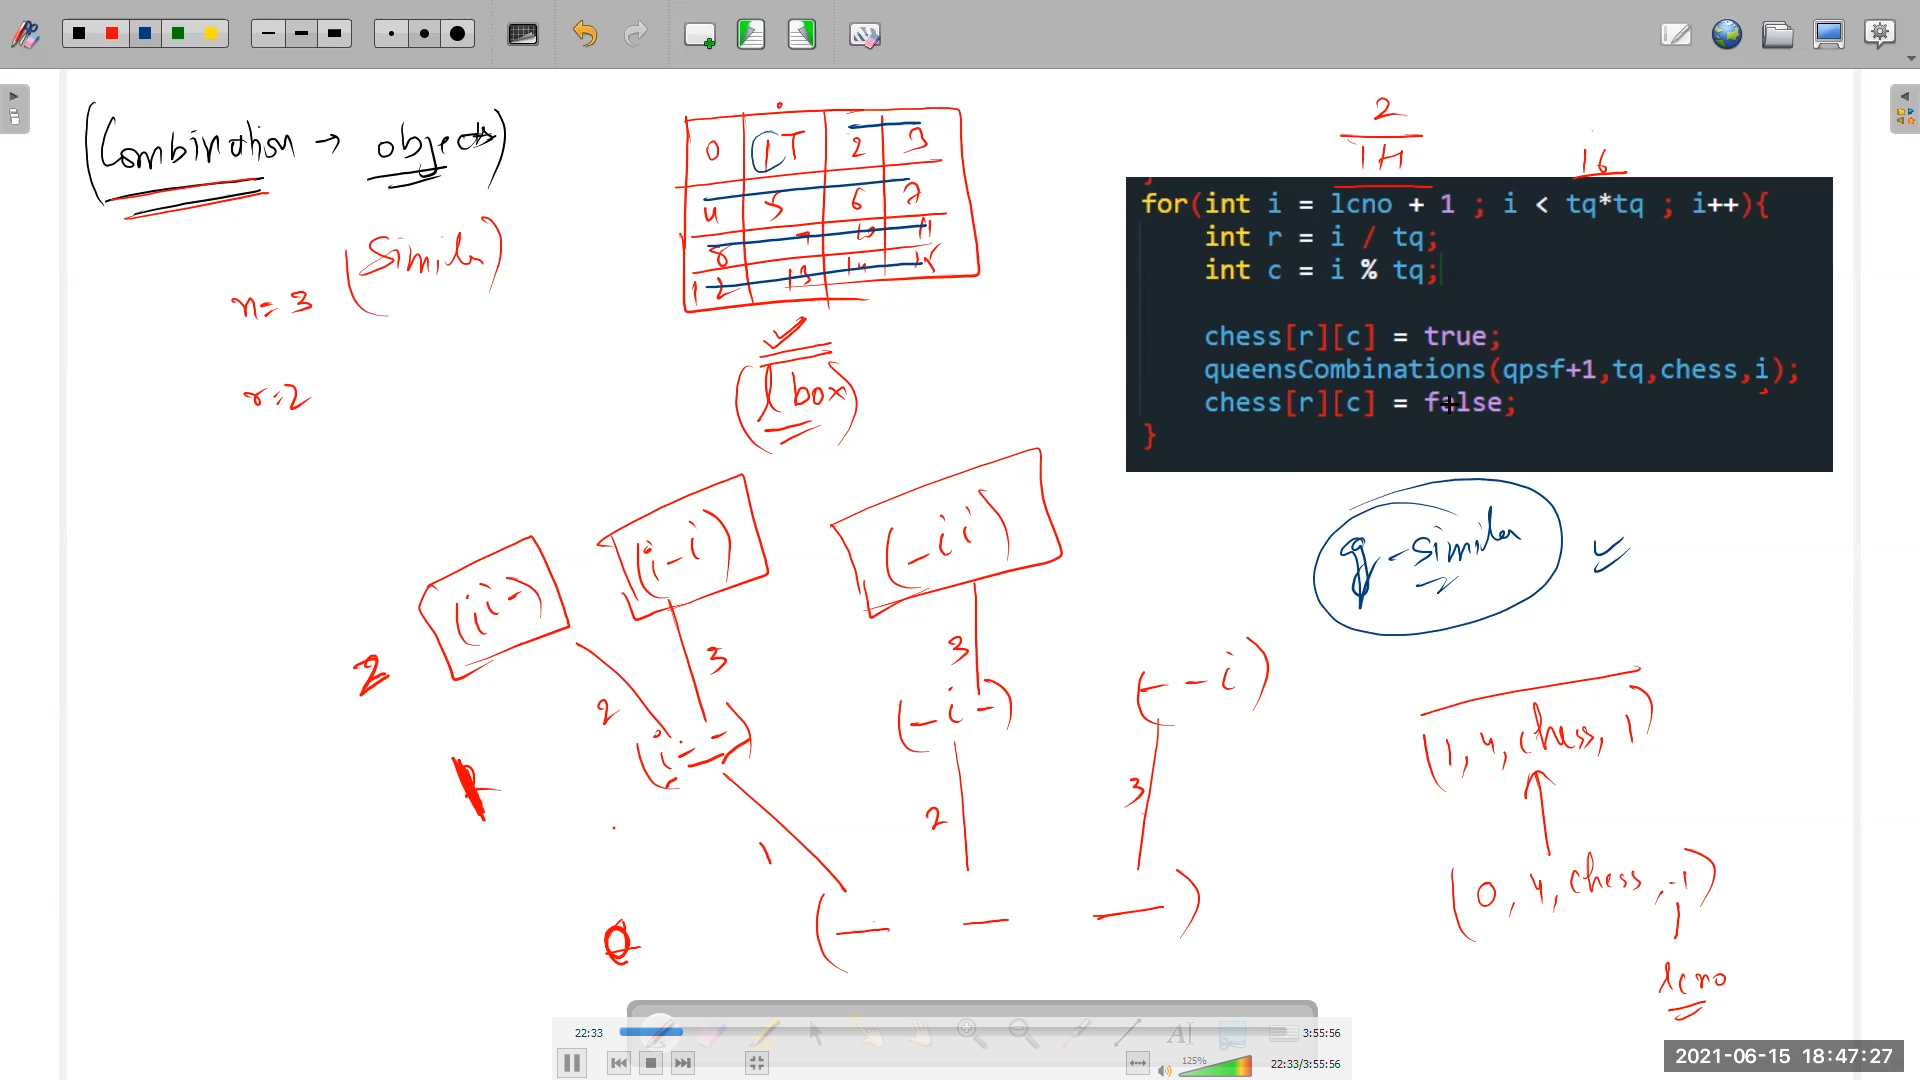 (Combination → objects)
(Similar)
n = 3
r = 2
0 1 T 2 3
4 5 6 7
8 9 10 11
12 13 14 15
(1 box)
2
1+1
16
for(int i = lcno + 1 ; i < tq*tq ; i++){
int r = i / tq;
int c = i % tq;
chess[r][c] = true;
queensCombinations(qpsf+1,tq,chess,i);
chess[r][c] = false;
}
q - similar
(i i -)
(i - i)
(- i i)
2
2
3
3
(i - -)
(- i -)
(- - i)
1
2
3
(_ _ _)
0
(1, 4, chess, 1)
(0, 4, chess, -1)
lcno
22:33
3:55:56
125%
22:33/3:55:56
2021-06-15 18:47:27